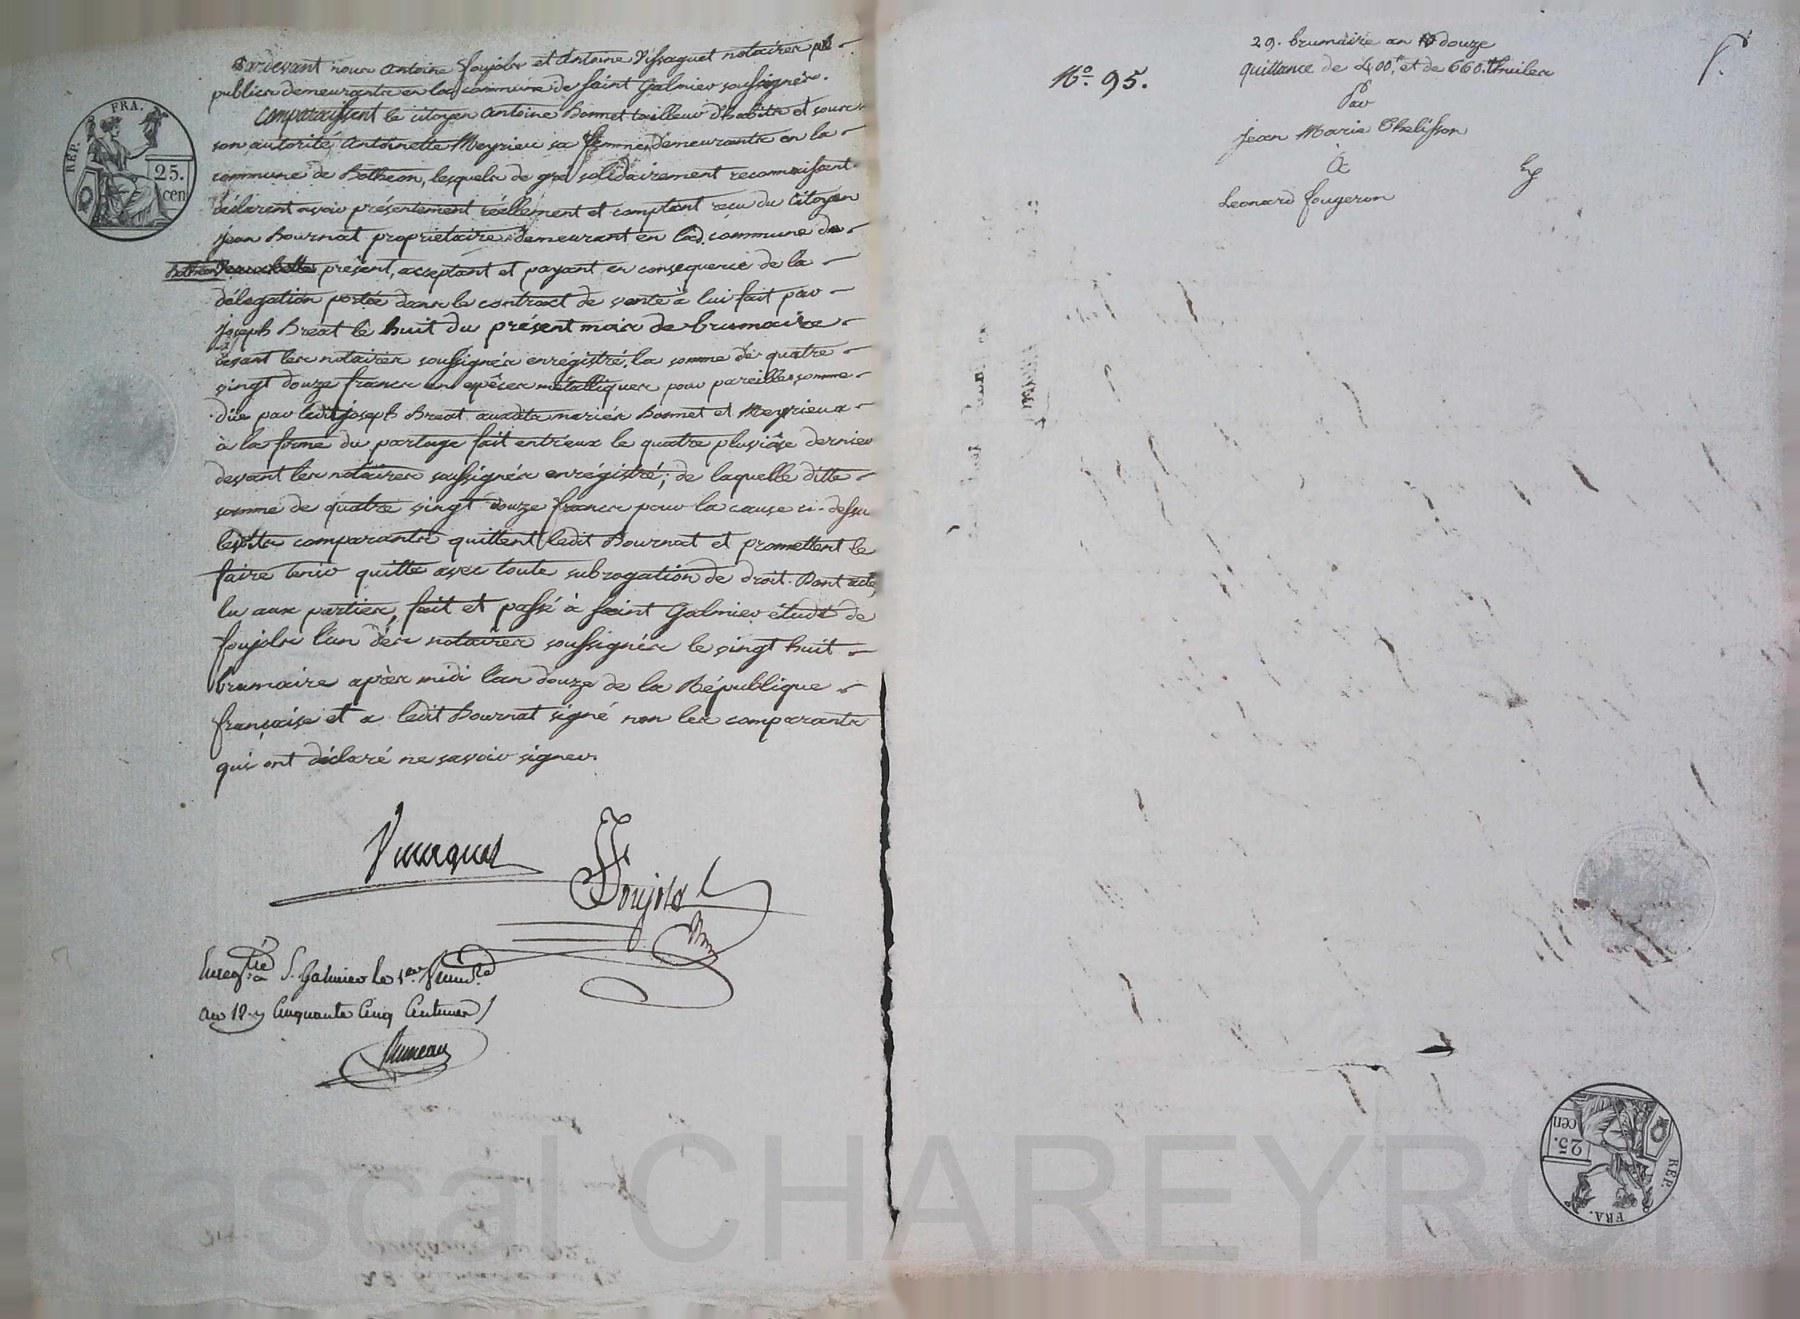 Pardevant nous Antoine Foujols et Antoine Vissaguet notaires
publics demeurants en la commune de Saint Galmier soussignés.
Comparaissent le citoyen Antoine Bonnet tailleur d'habits et sous
son autorité Antoinette Meyrieu sa femme demeurants en la
commune de Botheon, lesquels de gré solidairement reconnaissent
déclarent avoir présentement réellement et comptant recu du Citoyen
Jean Bournat propriétaire demeurant en lad. commune de
Botheon présent, acceptant et payant en consequence de la
délégation portée dans le contract de vente à lui fait par
Joseph Breat le huit du présent mois de brumaire
devant les notaires soussignés enrégistré, la somme de quatre
vingt douze francs en espèces métalliques pour pareille somme
düe par ledit Joseph Breat auxdits mariés Bonnet et Meyrieux
à la forme du partage fait entreux le quatre pluviôse dernier
devant les notaires soussignés enrégistré; de laquelle ditte
somme de quatre vingt douze francs pour la cause ci-dessu
lesdits comparants quittent ledit Bournat et promettent le
faire tenir quitte avec toute subrogation de droit. Dont acte,
lu aux parties, fait et passé à Saint Galmier étude de
Foujols l'un des notaires soussignés le vingt huit
brumaire après midi l'an douze de la République
française et a ledit Bournat signé non les comparants
qui ont déclaré ne savoir signer.
Vissaguet
Foujols
Enregtré à S. Galmier le 1er frim.re
an 12. Cinquante Cinq Centimes
REP. FRA.
25.
cen
No. 95.
29. brumaire an douze
Quittance de 400.t et de 660. thuiles
Par
Jean Marie Thelisson
à
Leonard fougeron
REP. FRA.
25.
cen
Pascal CHAREYRON